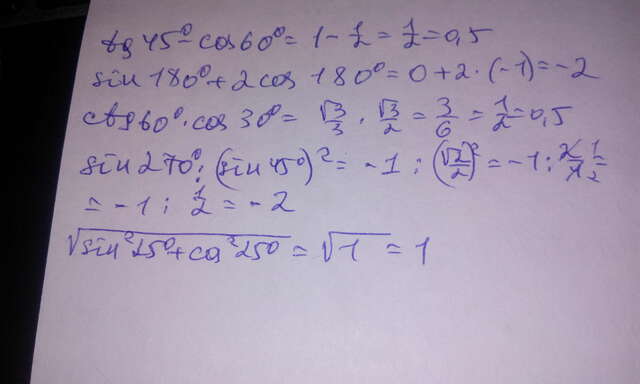 tg 45° - cos 60° = 1 - 1/2 = 1/2 = 0,5
sin 180° + 2 cos 180° = 0 + 2 · (-1) = -2
ctg 60° · cos 30° = √3/3 · √3/2 = 3/6 = 1/2 = 0,5
sin 270° : (sin 45°)² = -1 : (√2/2)² = -1 : 2/4 1/2 =
= -1 : 1/2 = -2
√sin² 25° + cos² 25° = √1 = 1